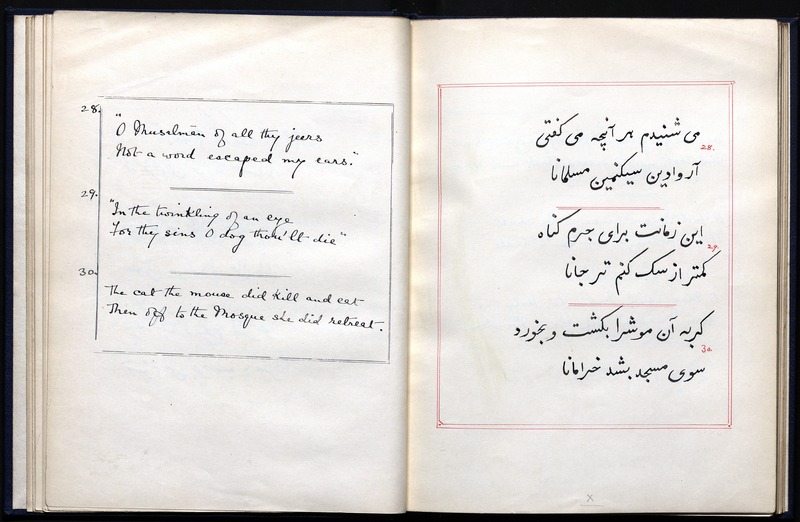 28.
"O Musalmán of all thy jeers
Not a word escaped my ears."
29.
"In the twinkling of an eye
For thy sins O dog thou'lt die"
30.
The cat the mouse did kill and eat
Then off to the Mosque she did retreat.
می شنیدم هر آنچه می کفتی
28.
مسلمانا
این زمانت برای جرم کناه
29.
کمتر از سک کنم تر جانا
کربه آن موشرا بکشت و بخورد
30.
سوی مسجد بشد خرامانا
x